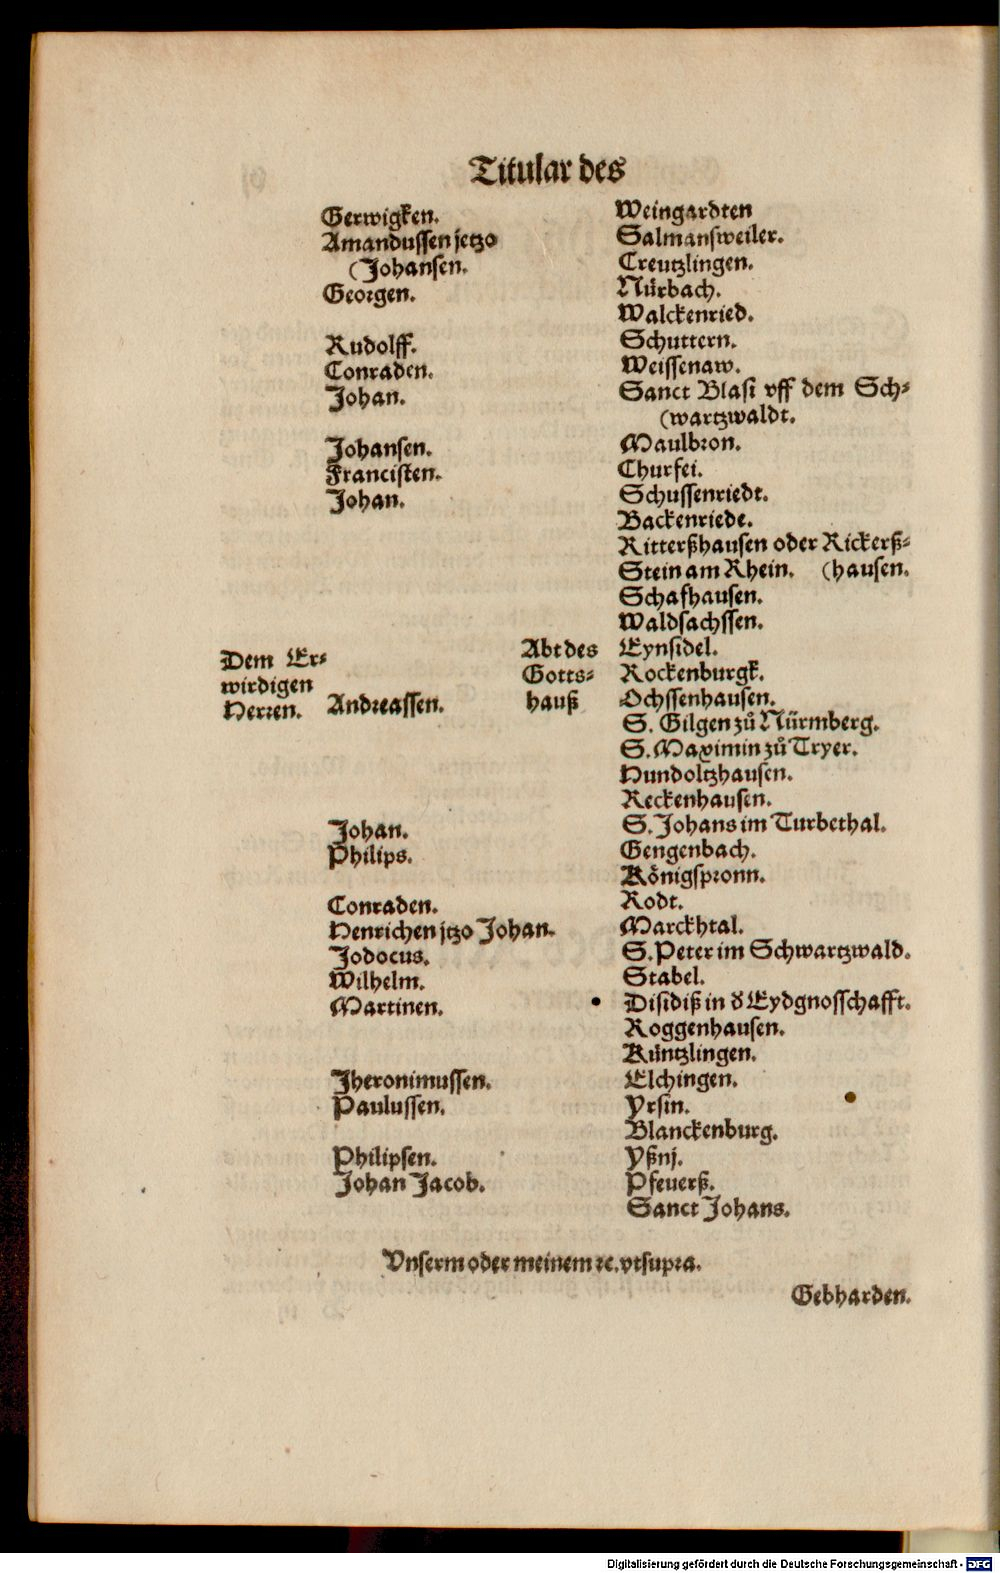 Titular des
Gerwigken. Weingardten
Amandussen jetzo Salmansweiler.
(Johansen. Creutzlingen.
Georgen. Nürbach.
Walckenried.
Rudolff. Schuttern.
Conraden. Weissenaw.
Johan. Sanct Blasi vff dem Sch⸗
(wartzwaldt.
Johansen. Maulbron.
Francisten. Churfei.
Johan. Schussenriedt.
Backenriede.
Ritterßhausen oder Rickerß⸗
Stein am Rhein. (hausen.
Schafhausen.
Waldsachssen.
Dem Er⸗ Abt des Eynsidel.
wirdigen Gotts⸗ Rockenburgk.
Herren. Andreassen. hauß Ochssenhausen.
S. Gilgen zů Nürmberg.
S. Maximin zů Tryer.
Hundoltzhausen.
Reckenhausen.
Johan. S. Johans im Turbethal.
Philips. Gengenbach.
Königspronn.
Conraden. Rodt.
Henrichen jtzo Johan. Marckhtal.
Jodocus. S. Peter im Schwartzwald.
Wilhelm. Stabel.
Martinen. Disidiß in d Eydgnosschafft.
Roggenhausen.
Küntzlingen.
Jheronimussen. Elchingen.
Paulussen. Yrsin.
Blanckenburg.
Philipsen. Yßnj.
Johan Jacob. Pfeuerß.
Sanct Johans.
Vnserm oder meinem ꝛc. vtsupra.
Gebharden.
Digitalisierung gefördert durch die Deutsche Forschungsgemeinschaft - DFG